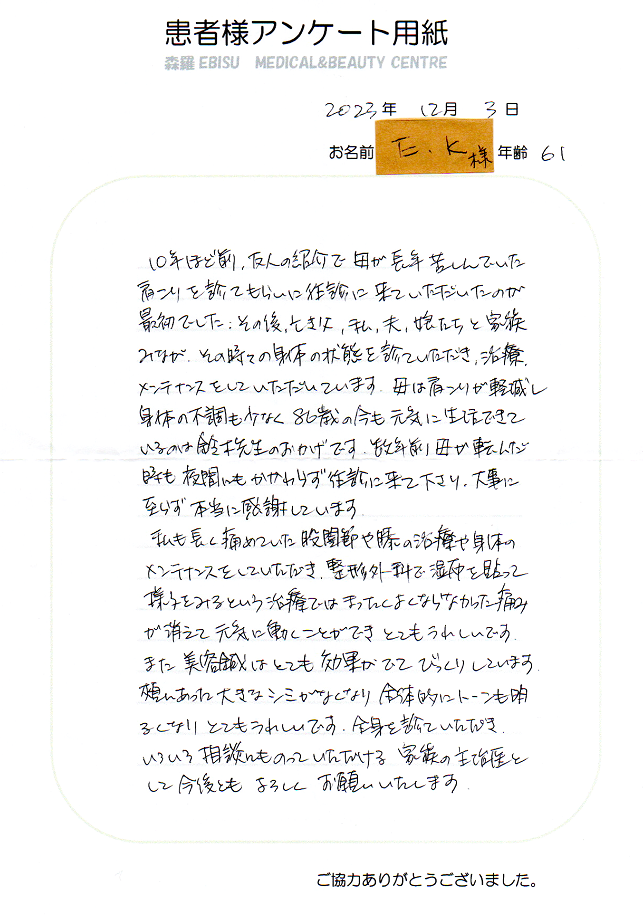 患者様アンケート用紙
森羅 EBISU MEDICAL&BEAUTY CENTRE
2023年 12月 3日
お名前 E.K 様 年齢 61
10年ほど前、友人の紹介で 母が長年苦しんでいた
肩こりを診てもらいに往診に来ていただいたのが
最初でした。その後、ときは、私、夫、娘たちと家族
みなが、その時々の身体の状態を診ていただき、治療、
メンテナンスをしていただいています。母は肩こりが軽減し
身体の不調も少なく86歳の今も元気に生活できて
いるのは鈴木先生のおかげです。数年前母が転んだ
時も夜間にもかかわらず往診に来て下さり、大事に
至らず本当に感謝しています。
私も長く痛めていた股関節や膝の治療や身体の
メンテナンスをしていただき、整形外科で湿布を貼って
様子をみるという治療ではまったくよくならなかった痛み
が消えて元気に働くことができとてもうれしいです。
また美容鍼はとても効果がでてびっくりしています。
頬にあった大きなシミがなくなり全体的にトーンも明
るくなりとてもうれしいです。全身を診ていただき、
いろいろ相談にものっていただける家族の主治医と
して今後ともよろしくお願いいたします。
ご協力ありがとうございました。